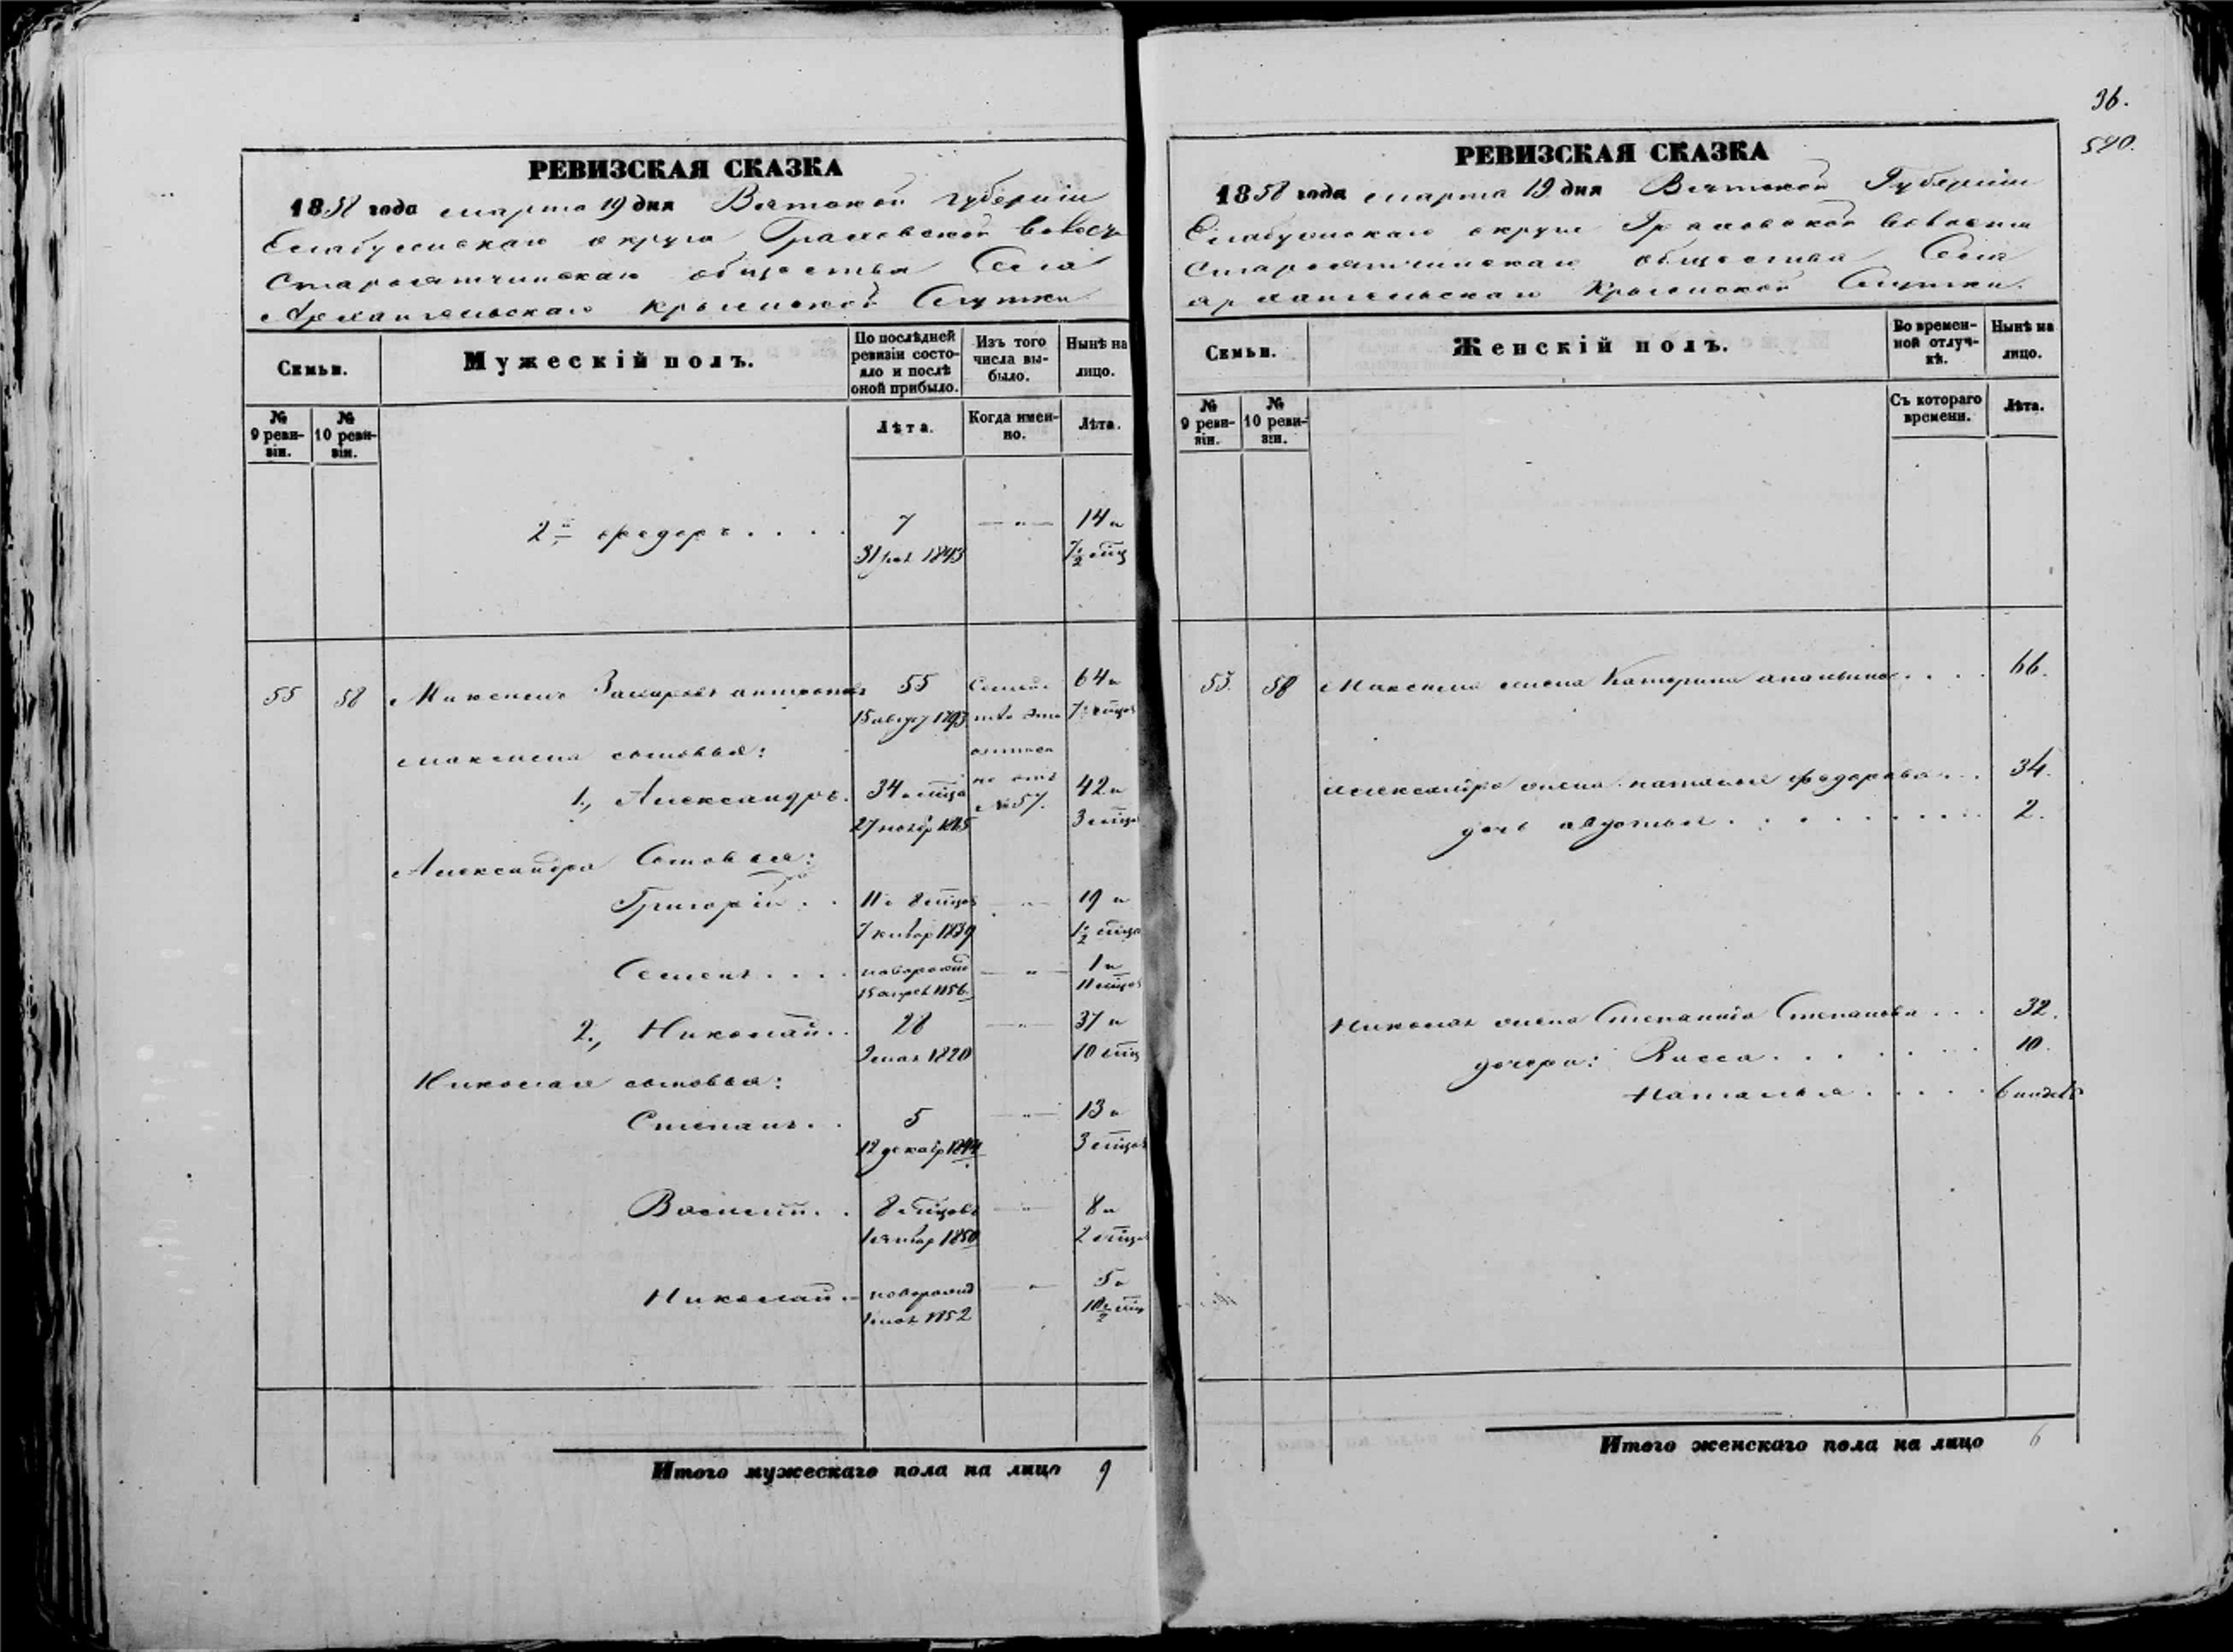 РЕВИЗСКАЯ СКАЗКА
1858 года марта 19 дня Вятской губерніи
Елабужскаго округа Граховской волости
Староятчинскаго общества Села
Архангельскаго Крымской Слутки
Семьи.
Мужескій полъ.
По послѣдней ревизіи состояло и послѣ оной прибыло.
Изъ того числа выбыло.
Нынѣ на лицо.
№ 9 ревизіи.
№ 10 ревизіи.
Лѣта.
Когда именно.
Лѣта.
2й Федоръ . . . . 7 — „ — 14 и
31 1843 7½ мѣц
55 58 Максимъ Захаровъ Антоновъ 55 64 и
15 август 1793 7 мѣцов
Максима сыновья:
1., Александръ. 34 3 мѣца 42 и
27 ноябр 1815 № 57. 3 мѣцов
Александра Сыновья:
Григорій . . 11 и 8 мѣцов — „ — 19 и
7 январ 1839 1½ мѣца
Семенъ . . . . новорожд — „ — 1 и
15 апрел 1856 11 мѣцов
2., Николай . . 28 — „ — 37 и
9 мая 1820 10 мѣц
Николая сыновья:
Степанъ . . 5 — „ — 13 и
12 декабр 1844 3 мѣцов
Василій . . 8 мѣцовъ — „ — 8 и
1 январ 1850 2 мѣцов
Николай . — новорожд — „ — 5 и
1 мая 1852 10½ мѣц
Итого мужескаго пола на лицо 9
36.
520.
РЕВИЗСКАЯ СКАЗКА
1858 года марта 19 дня Вятской Губерніи
Елабужскаго округа Граховской волости
Староятчинскаго общества Села
Архангельскаго Крымской Слутки.
Семьи.
Женскій полъ.
Во временной отлучкѣ.
Нынѣ на лицо.
№ 9 ревизіи.
№ 10 ревизіи.
Съ котораго времени.
Лѣта.
55. 58 Максима жена Катерина Ананьина . . . . 66.
Александра жена Наталья Федорова . . . 34.
дочь Авдотья . . . . . . . . . 2.
Николая жена Степанида Степанова . . . 32.
дочери: Раиса . . . . . . 10.
Наталья . . . . 6 недель
Итого женскаго пола на лицо 6